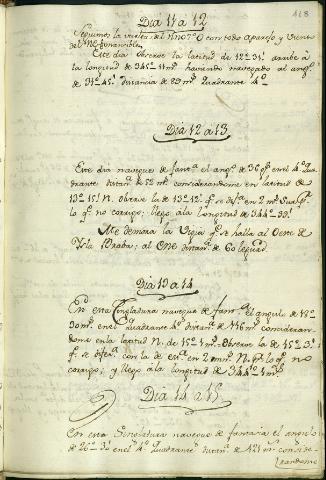 118
Dia 11 a 12
Seguimos la vuelta del Nno¼O con todo Aparejo y Viento
del NE bonancible
Este dia observe la latitud de 12°31' arribe à
la longitud de 345°11ms haviendo navegado al angº
de 31°45' distancia de 89ms Quadrante 4º
Dia 12 a 13
Este dia navegue de fantª el angº de 36gs en el 4º Qua
drante distanª de 52ms considerandome en latitud de
13°15' N. observe la de 13°12' qe se difª en 2ms Sur qe
lo qe no corrijo; llego a la longitud de 344°39'
Me demara la Vigia qe se halla al Oeste de
Isla Braba; al ONE distanª de 60 leguas
Dia 13 a 14
En esta Singladura navegue de fantª el angulo de 18°
30ms en el Quadrante 4º distanª de 116ms consideran
dome en la latitud N. de 15°1ms Observe la de 15°3'
qe se difera con la de estª en 2ms N. pr lo qe no
corrijo; y llego à la longitud de 344°1ms
Dia 14 a 15
En esta Singladura navegue de fantaria el angulo
de 26°30' en el 4º Quadrante distanª de 121ms conside
randome